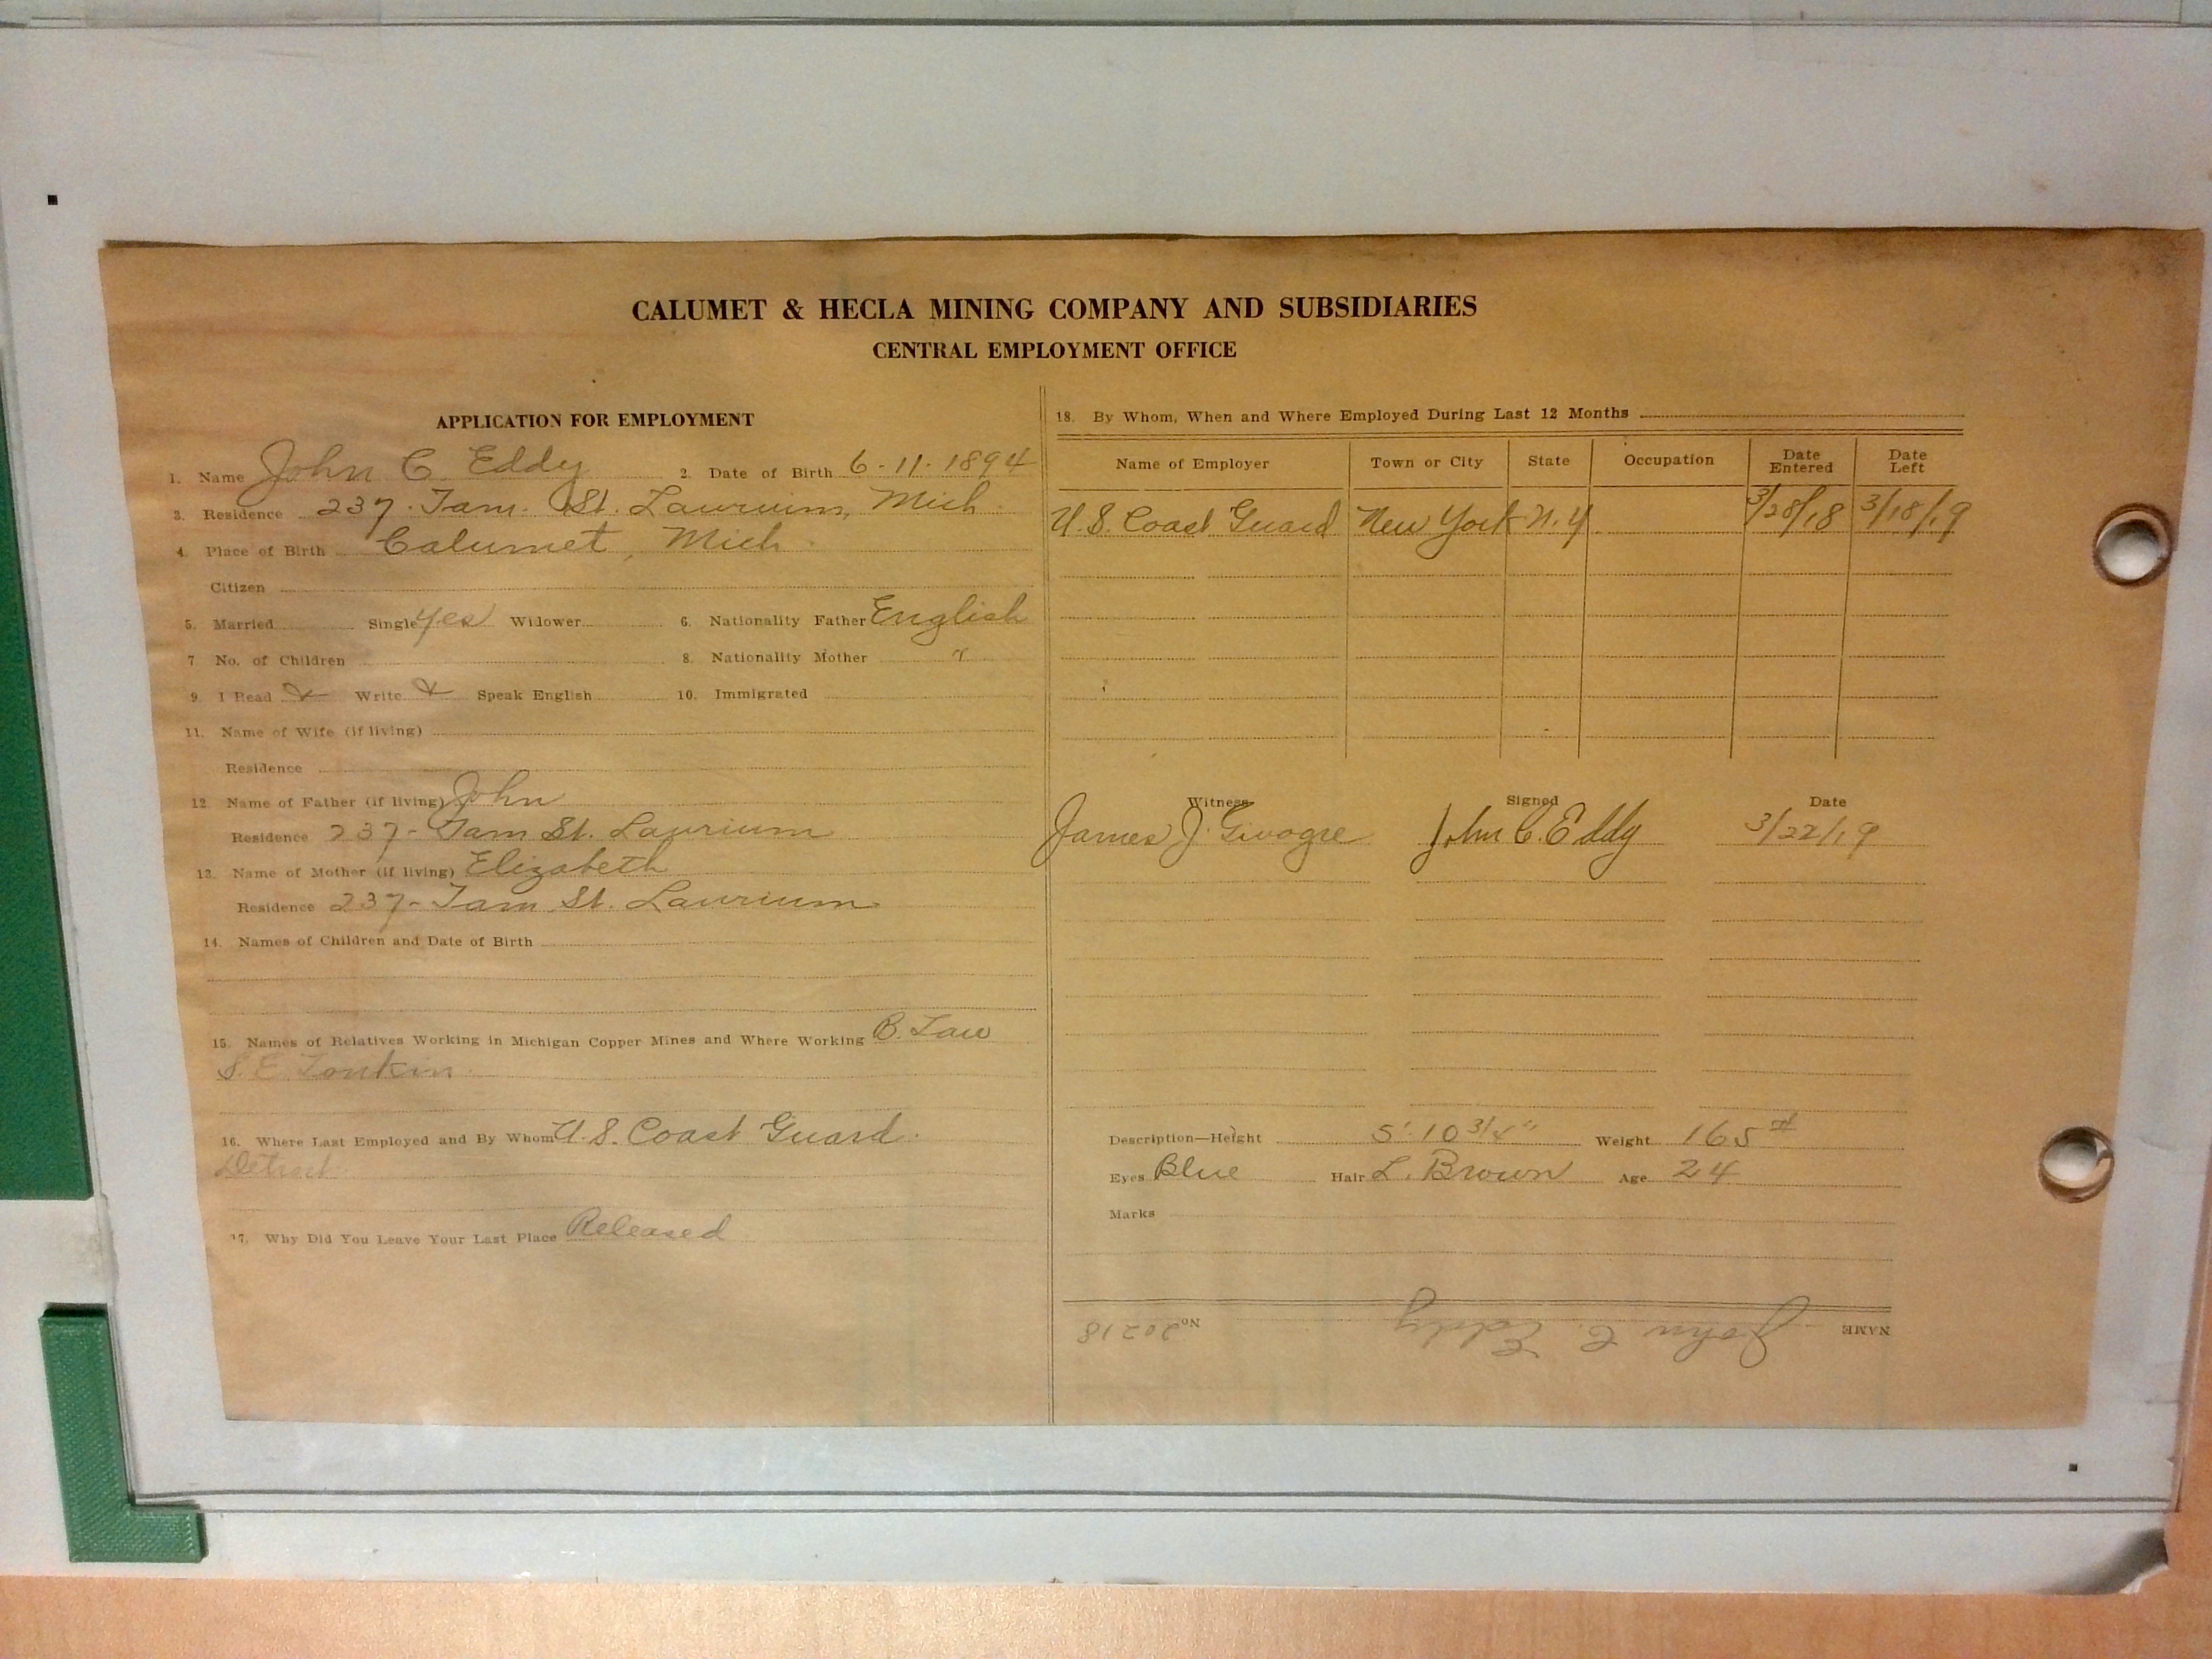 CALUMET & HECLA MINING COMPANY AND SUBSIDIARIES
CENTRAL EMPLOYMENT OFFICE
APPLICATION FOR EMPLOYMENT
1. Name John C. Eddy 2. Date of Birth 6-11-1894
3. Residence 237 Tam. St. Laurium, Mich.
4. Place of Birth Calumet, Mich.
Citizen
5. Married Single Yes Widower 6. Nationality Father English
7 No. of Children 8. Nationality Mother "
9. I Read Write Speak English 10. Immigrated
11. Name of Wife (if living)
Residence
12. Name of Father (if living) John
Residence 237- Tam St. Laurium
13. Name of Mother (if living) Elizabeth
Residence 237- Tam St. Laurium
14. Names of Children and Date of Birth
15. Names of Relatives Working in Michigan Copper Mines and Where Working B. Law
S. E. Tonkin
16. Where Last Employed and By Whom U.S. Coast Guard.
Detroit
17. Why Did You Leave Your Last Place Released
18. By Whom, When and Where Employed During Last 12 Months
Name of Employer Town or City State Occupation Date Entered Date Left
U.S. Coast Guard New York N.Y 3/28/18 3/18/19
Witness Signed Date
James J. John C. Eddy 3/22/19
Description—Height 5' 10 3/4" Weight 165 #
Eyes Blue Hair L. Brown Age 24
Marks
NAME John C. Eddy No. 20218